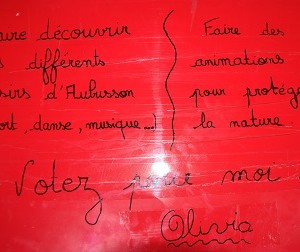 aire découvrir
s différents
sirs d'Aubusson
ort, danse, musique...)
Faire des
animations
pour protége
la nature.
Votez pour moi
Olivia